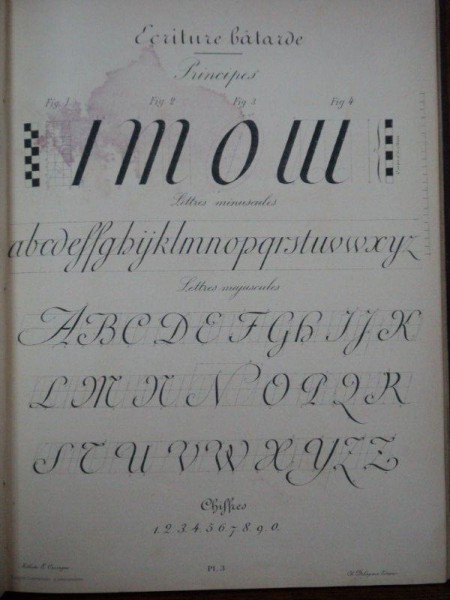 Ecriture bâtarde
Principes
Fig 1 Fig 2 Fig 3 Fig 4
ı m o ııı
Lettres minuscules
abcdeffghijklmnopqrstuvwxyz
Lettres majuscules
ABCDEFGHIJK
LMNNOPQR
STUVWXYZZ
Chiffres
1.2.3.4.5.6.7.8.9.0.
Pl. 3